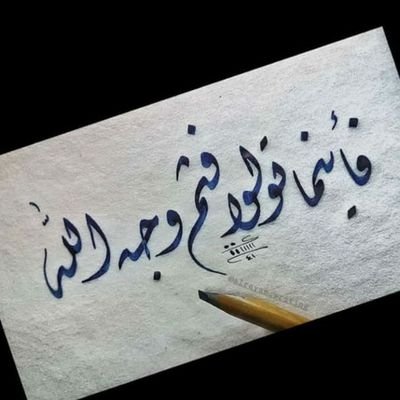 فأينما تولوا فثم وجه الله